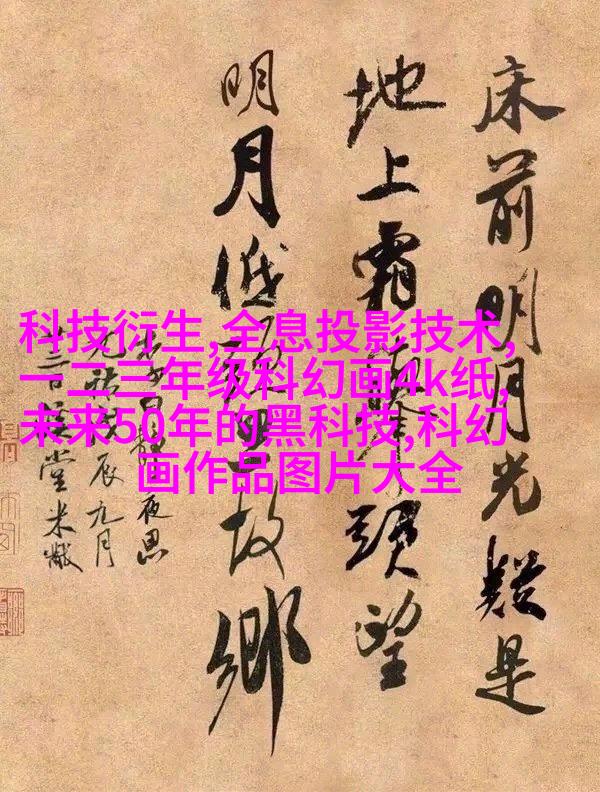 科技衍生,全息投影技术,
一二三年级科幻画4k纸,
未来50年的黑科技,科幻
画作品图片大全
床前明月光疑是
地上霜舉頭望
明月低頭思故鄉
夜思
元祐辰九月
堂米黻